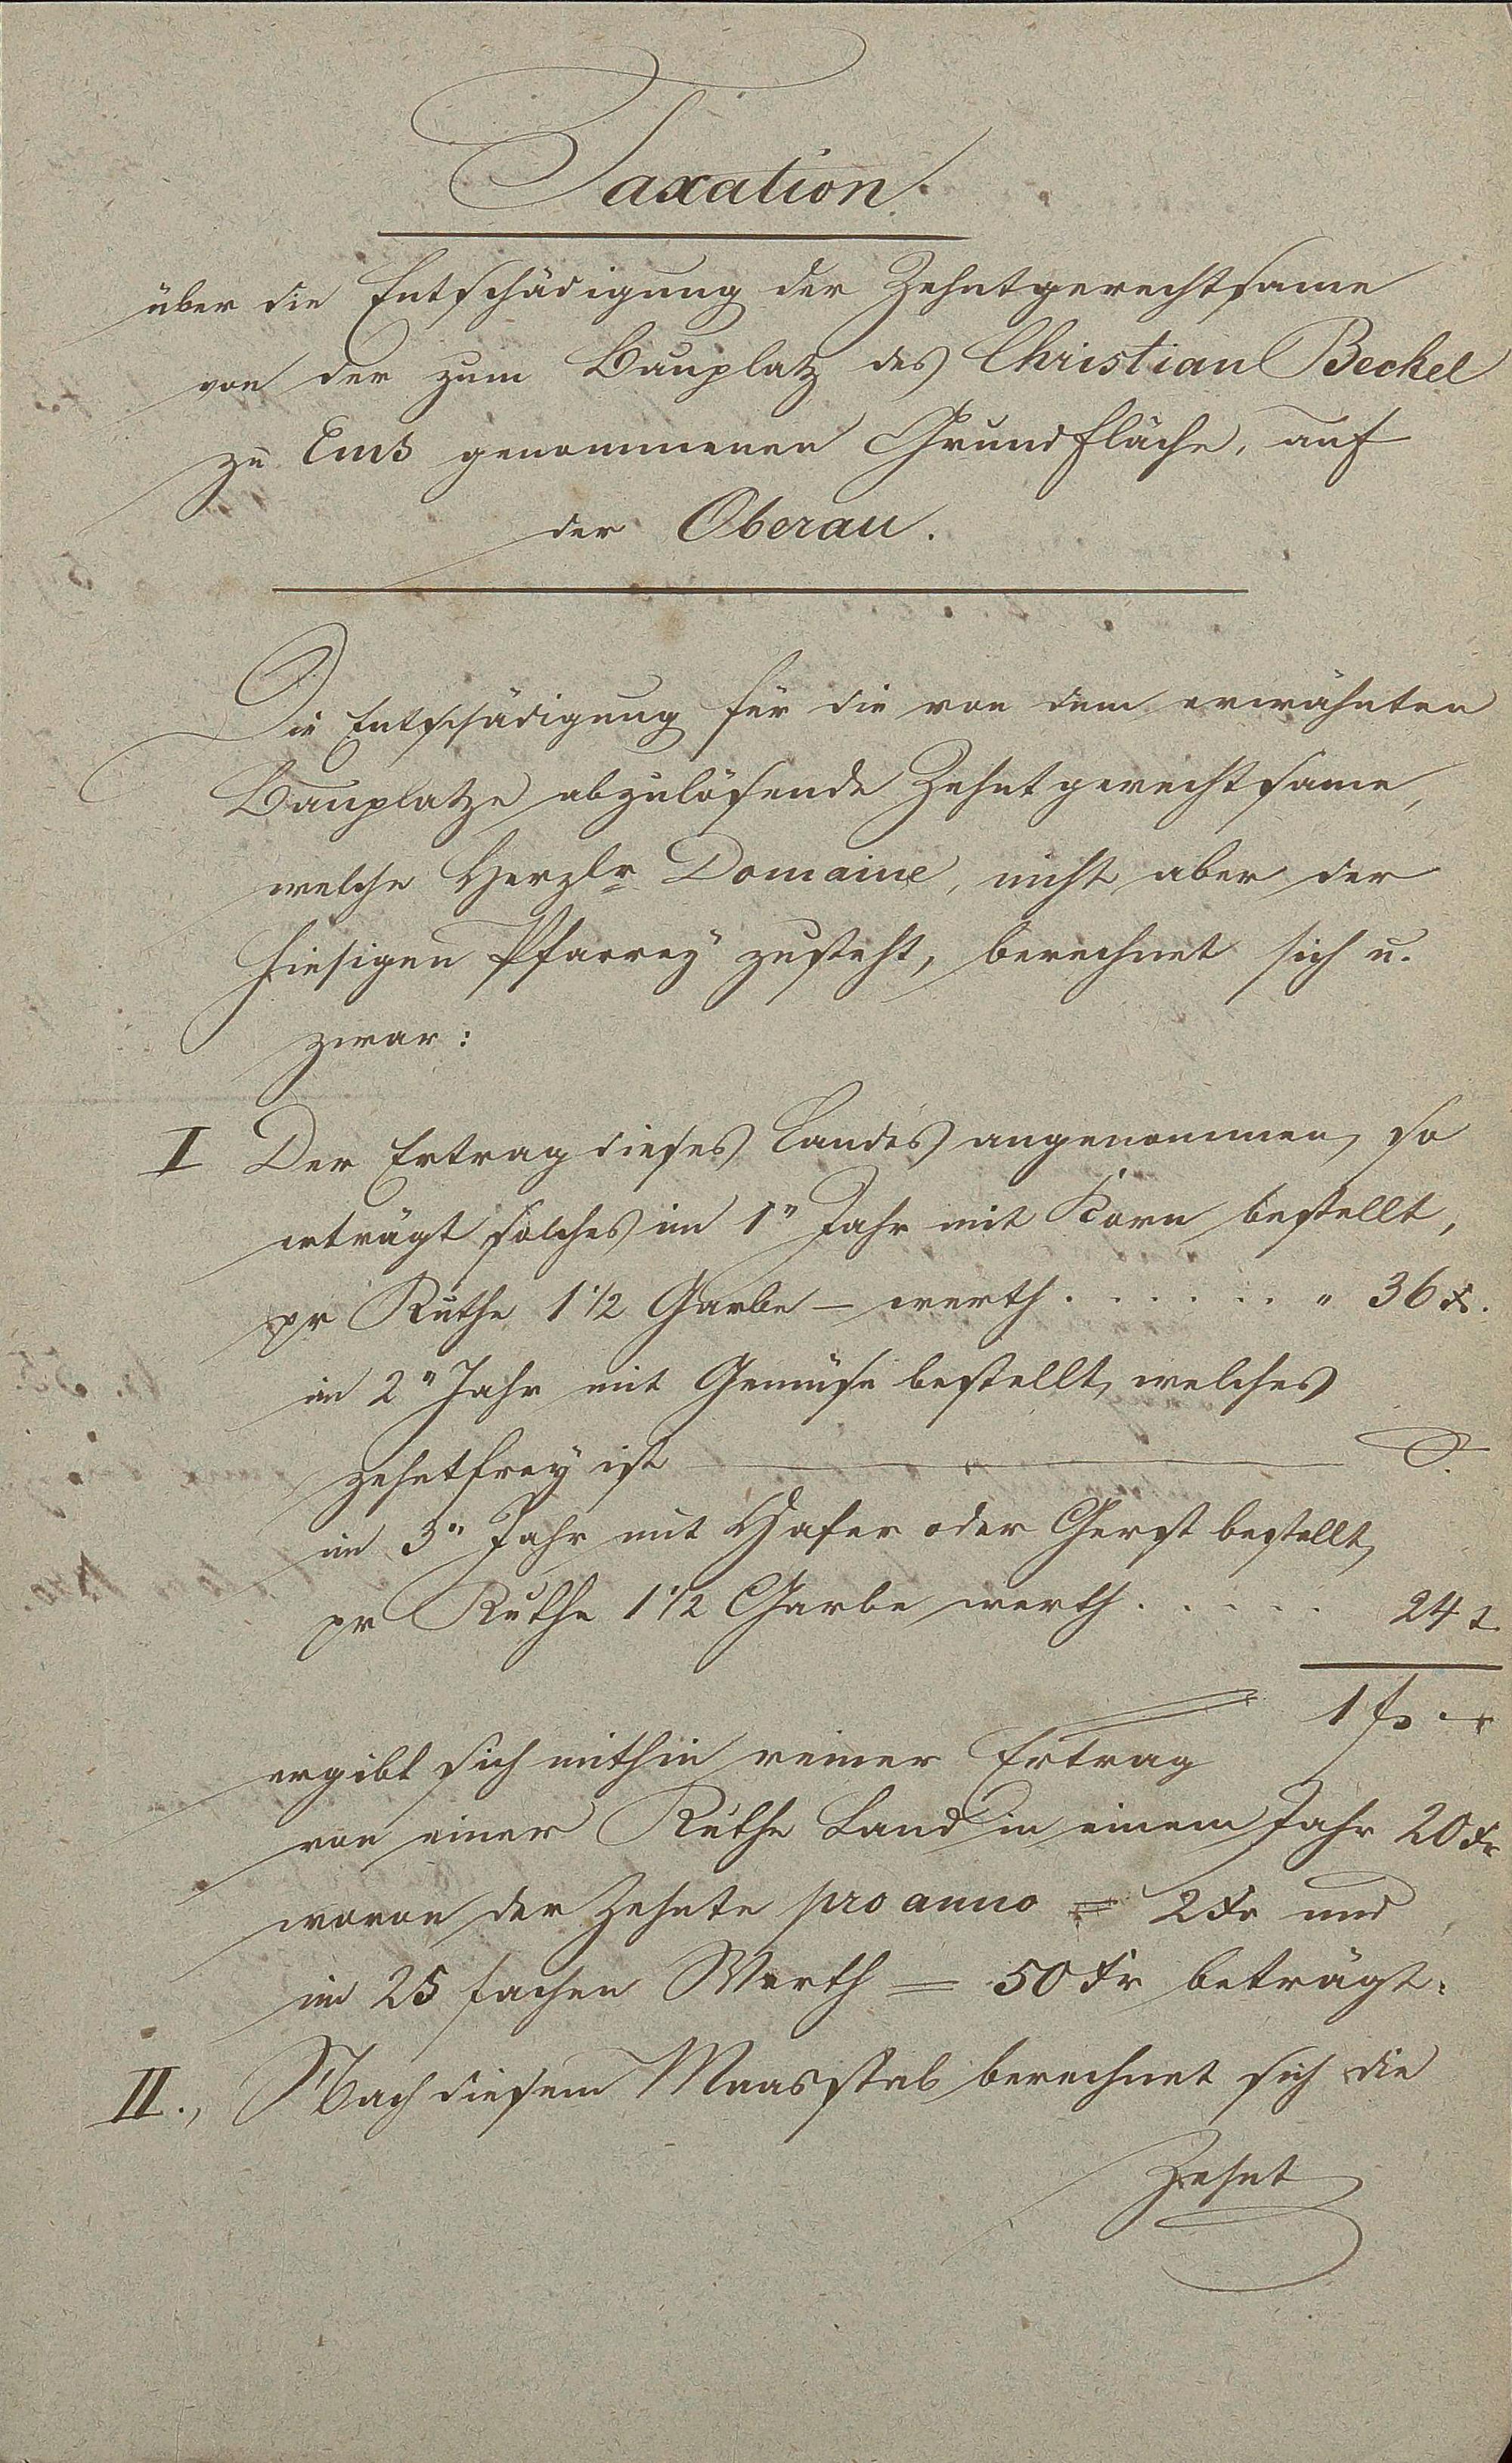 Taxation.
über die Entschädigung der Zehntgerechtsame
von der zum Bauplatz des Christian Beckel
zu Ems genommenen Grundfläche, auf
der Oberau.
Die Entschädigung für die von dem erwähnten
Bauplatze abzulösende Zehntgerechtsame,
welche Herzlr Domaine, nicht aber der
hiesigen Pfarrey zusteht, berechnet sich u.
zwar:
I Der Ertrag dieses Landes angenommen, so
erträgt solches im 1" Jahr mit Korn bestellt,
pr Ruthe 1 1/2 Garbe – werth . . . . . . " 36 x.
im 2" Jahr mit Gemüse bestellt, welches
zehntfrey ist
im 3" Jahr mit Hafer oder Gerst bestellt,
pr Ruthe 1 1/2 Garbe werth . . . . . 24 x.
= 1 f –
ergibt sich mithin reiner Ertrag
von einer Ruthe Land in einem Jahr 20 xr
wovon der Zehnte pro anno = 2 xr und
im 25 fachen Werth = 50 xr beträgt.
II., Nach diesem Maasstab berechnet sich die
Zehnt